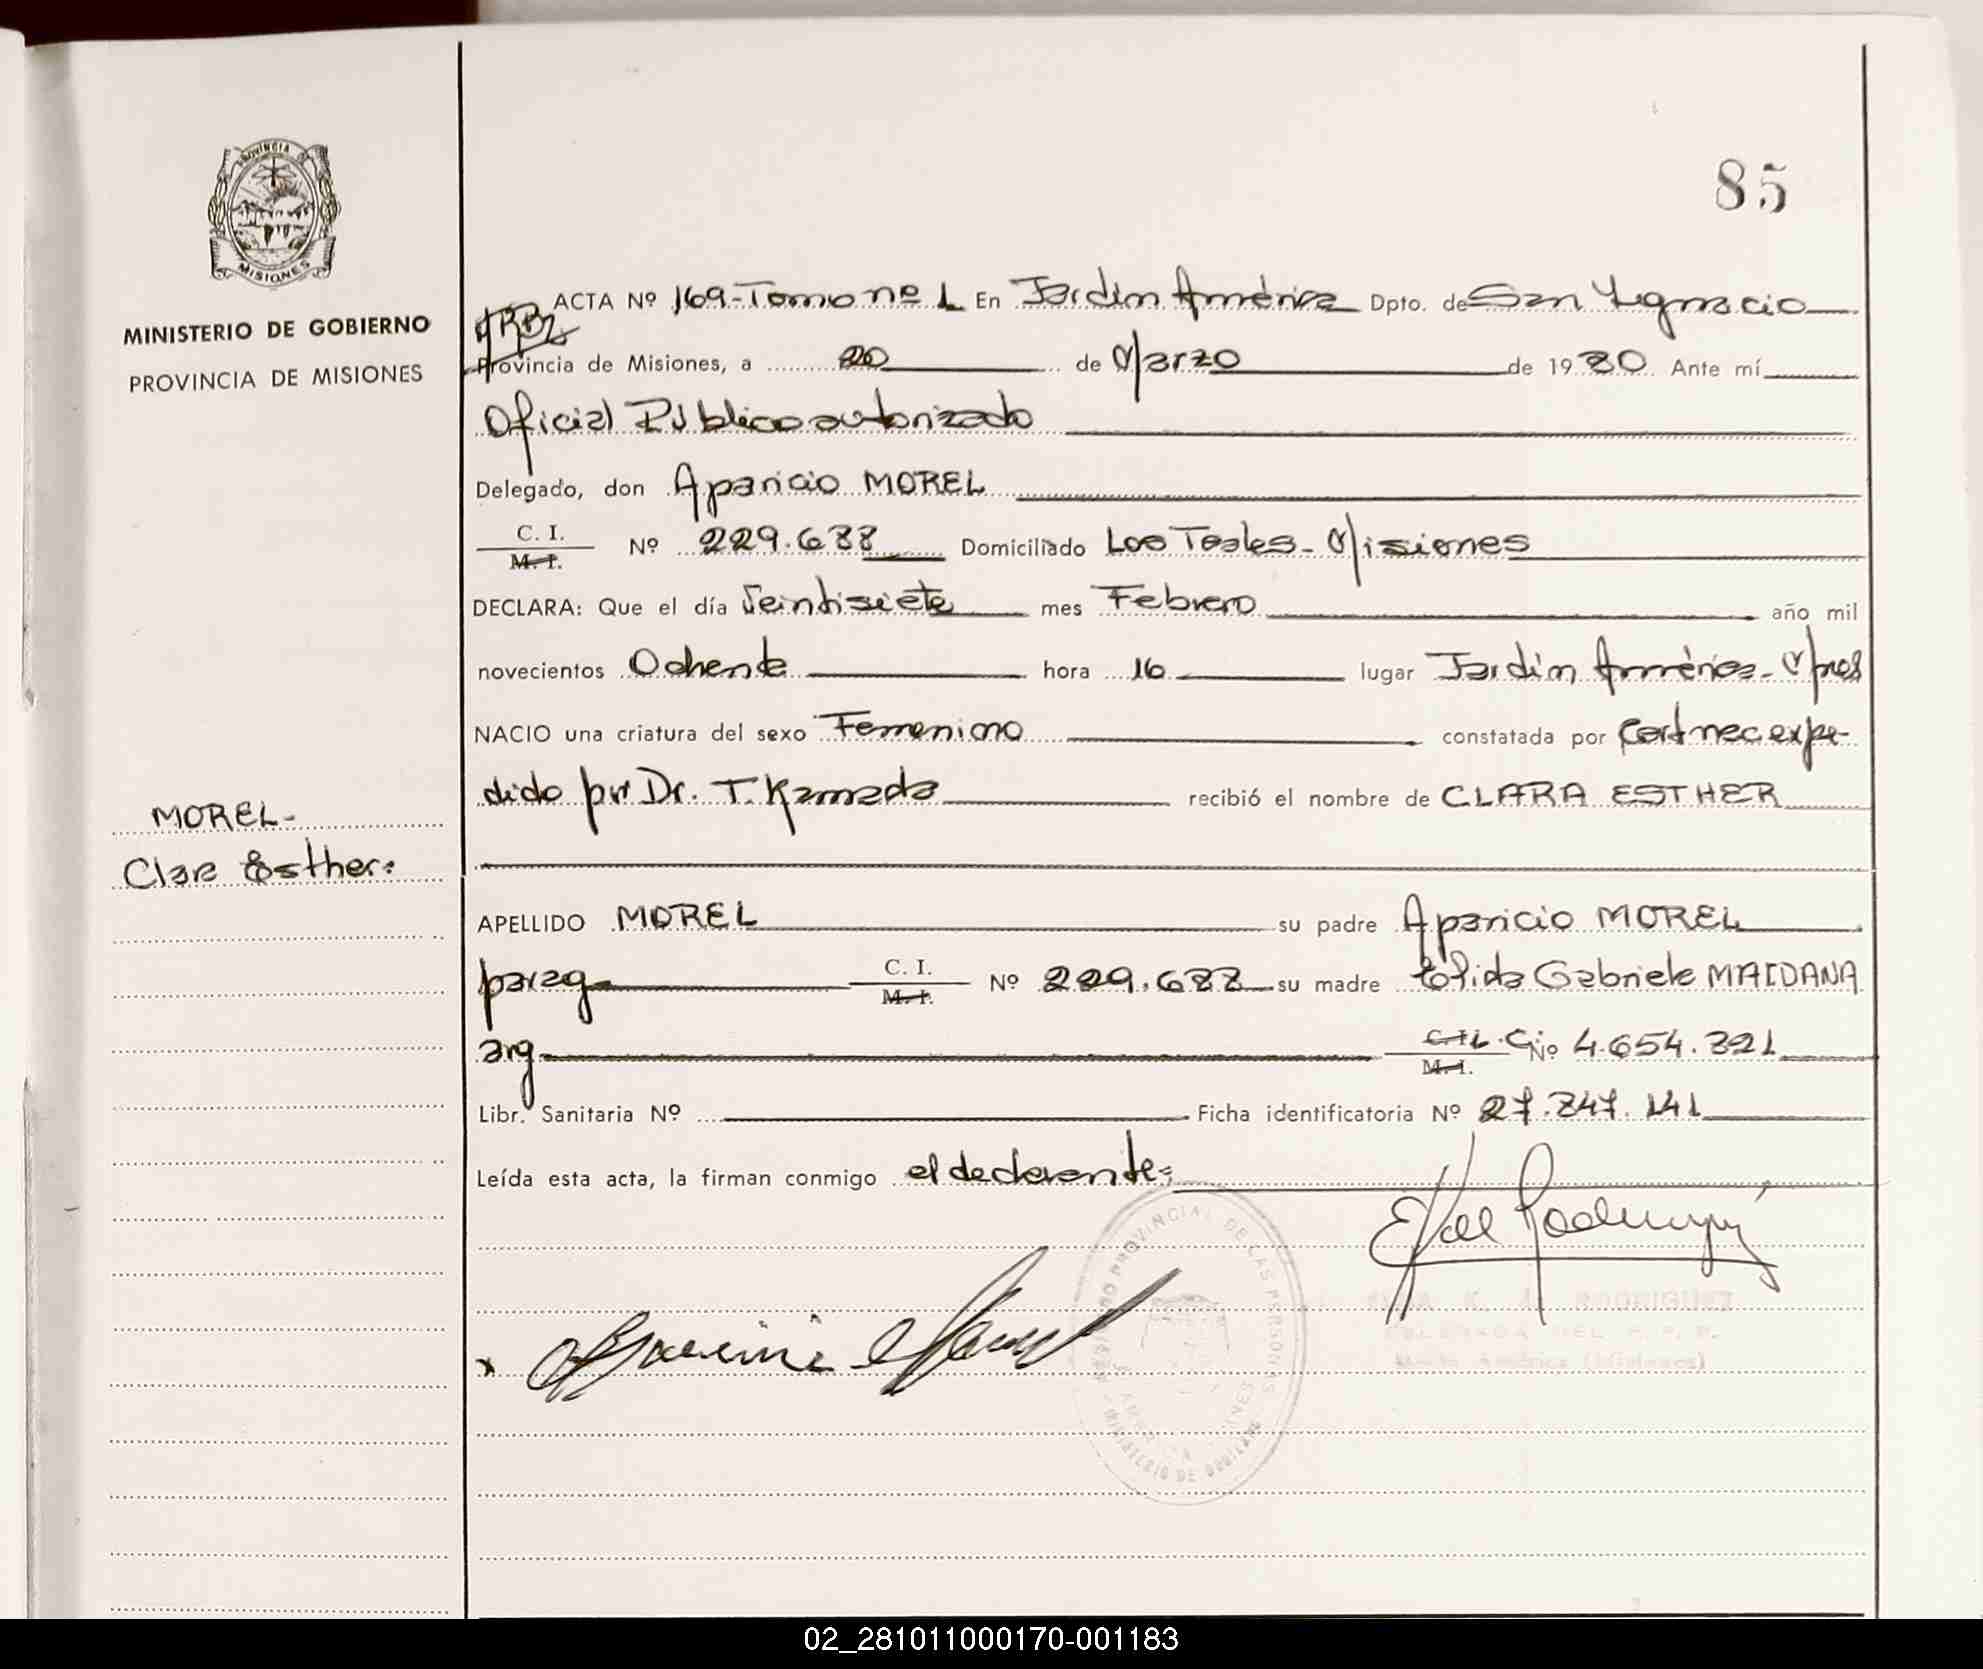 85
PROVINCIA DE
MISIONES
MINISTERIO DE GOBIERNO
PROVINCIA DE MISIONES
ACTA Nº 169-Tomo nº 1 En Jardín América Dpto. de San Ygnacio
Provincia de Misiones, a 20 de Marzo de 1980 Ante mí
Oficial Público autorizado
Delegado, don Aparicio MOREL
C. I.
M. I. Nº 229.688 Domiciliado Los Teales - Misiones
DECLARA: Que el día Veintisiete mes Febrero año mil
novecientos Ochenta hora 16 lugar Jardín América - Mnes
NACIO una criatura del sexo Femenino constatada por Cert mec expe-
dido por Dr. T. Kamada recibió el nombre de CLARA ESTHER
MOREL -
Clara Esther:
APELLIDO MOREL su padre Aparicio MOREL
parag C. I.
M. I. Nº 229.688 su madre Gabriela MAIDANA
arg C. I. L. C.
M. I. Nº 4.654.321
Libr. Sanitaria Nº Ficha identificatoria Nº 27.847.141
Leída esta acta, la firman conmigo el declarante:
REGISTRO PROVINCIAL DE LAS PERSONAS
MINISTERIO DE GOBIERNO
RODRIGUEZ
DELEGADA DEL R. P. P.
Jardín América (Misiones)
02_281011000170-001183